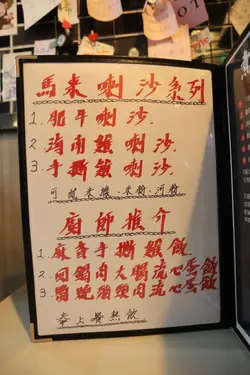 馬来喇沙系列
1. 肥牛喇沙.
2. 海南雞喇沙.
3. 手撕雞喇沙.
可選米線、米粉、河粉
廚師推介
1. 麻香手撕雞飯
2. 回鍋肉大腸流心蛋飯
3. 鹵豬頸肉流心蛋飯
奉上餐熱飲